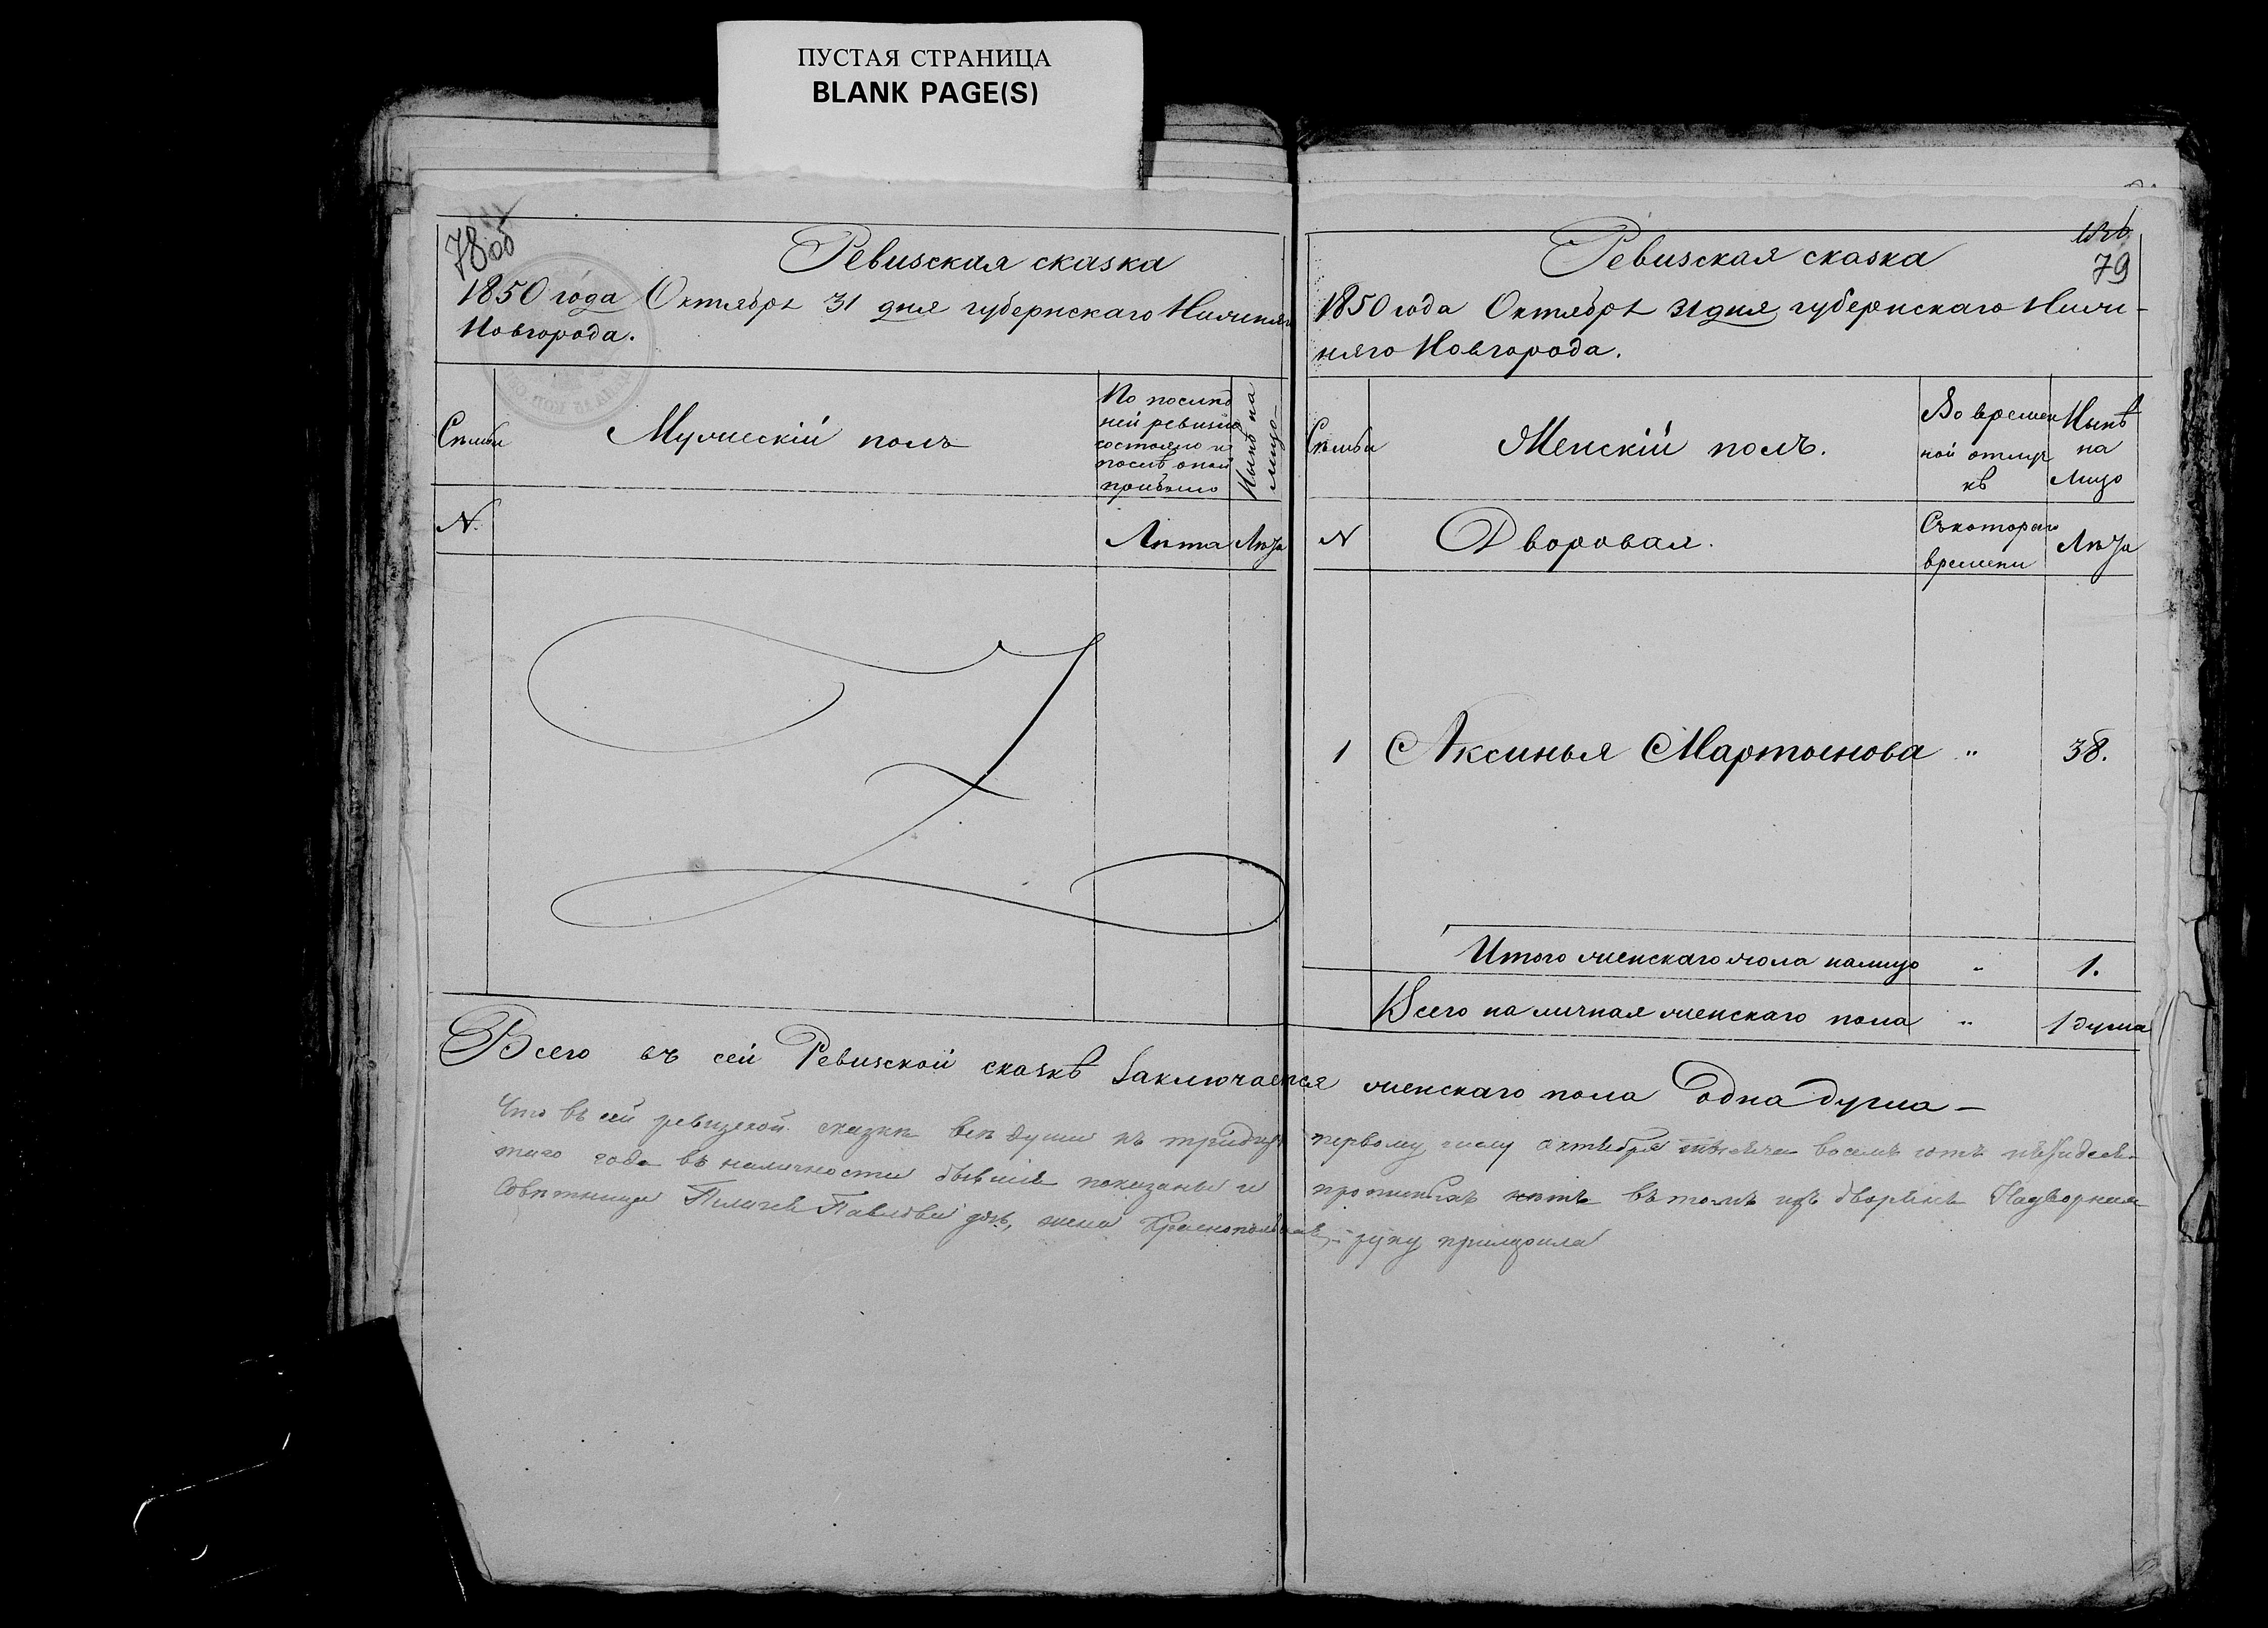 ПУСТАЯ СТРАНИЦА
BLANK PAGE(S)
78 об
Ревизская сказка
1850 года Октября 31 дня губернскаго Нижняго
Новгорода.
Семьи
Мужескій полъ
По послѣд
ней ревизіи
состояло и
послѣ оной
прибыло
Нынѣ на
лицо
N
Лѣта
Лѣта
79
Ревизская сказка
1850 года Октября 31 дня губернскаго Ниж-
няго Новгорода.
Семьи
Женскій полъ.
Во времен
ной отлуч
кѣ
Нынѣ
на
лицо
N
Дворовая.
Съ котораго
времени
Лѣта
1 Аксинья Мартынова " 38.
Итого женскаго пола налицо " 1.
Всего наличная женскаго пола " 1 душа
Всего въ сей Ревизской сказкѣ заключается женскаго пола одна душа –
Что въ сей ревизской сказкѣ всѣ души къ тридцать первому числу октября тысяча восемь сотъ пятидеся-
таго года въ наличности бывшія показаны и прописныхъ нѣтъ въ томъ изъ дворянъ Надворная
Совѣтница Павлова дочь, жена руку приложила